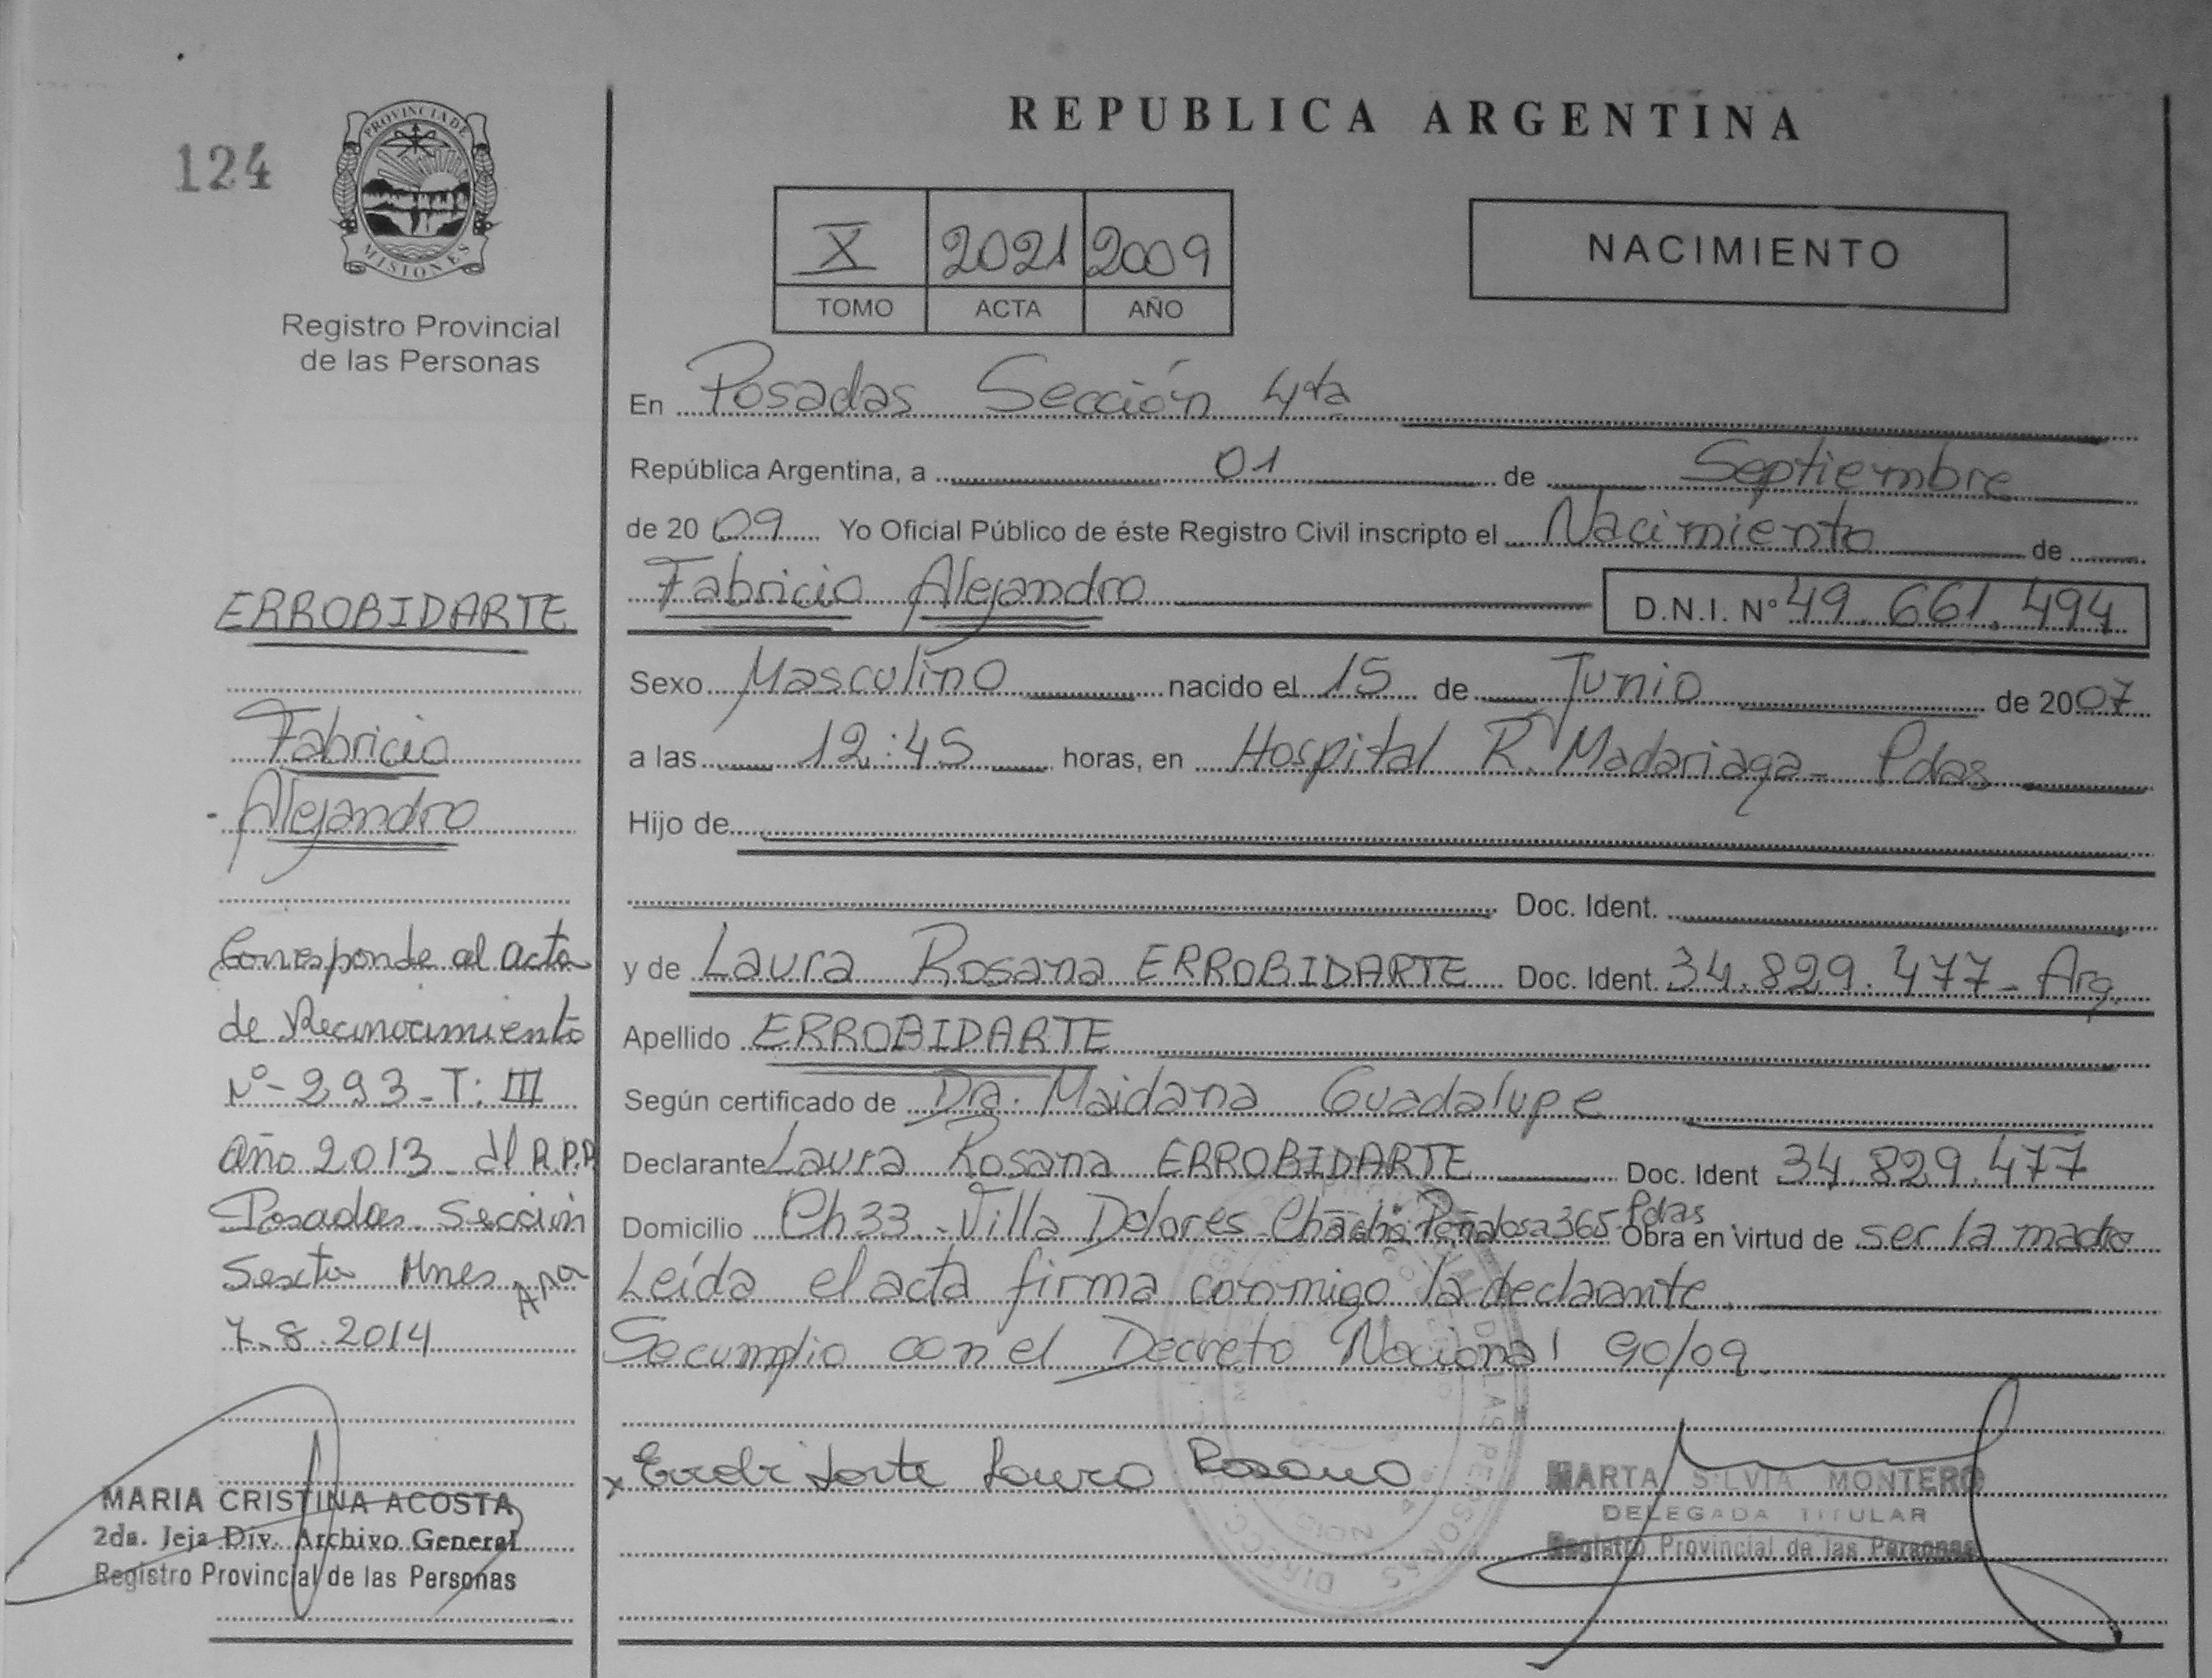 124
PROVINCIA DE
MISIONES
Registro Provincial
de las Personas
ERROBIDARTE
Fabricio
Alejandro
Corresponde al acta
de Reconocimiento
Nº-293-T: III
Año 2013- del R.P.P
Posadas Sección
Sexta Mnes
7-8-2014
MARIA CRISTINA ACOSTA
2da. Jefa Div. Archivo General
Registro Provincial de las Personas
REPUBLICA ARGENTINA
X 2021 2009
TOMO ACTA AÑO
NACIMIENTO
En Posadas Sección 4ta
República Argentina, a 01 de Septiembre
de 2009 Yo Oficial Público de éste Registro Civil inscripto el Nacimiento de
Fabricio Alejandro D.N.I. Nº 49.661.494
Sexo Masculino nacido el 15 de Junio de 2007
a las 12:45 horas, en Hospital R. Madariaga- Pdas
Hijo de
Doc. Ident.
y de Laura Rosana ERROBIDARTE Doc. Ident. 34.829.477- Arg.
Apellido ERROBIDARTE
Según certificado de Dra. Maidana Guadalupe
Declarante Laura Rosana ERROBIDARTE Doc. Ident 34.829.477
Domicilio Ch33.-Villa Dolores-Chacho Peñalosa 365-Pdas Obra en virtud de ser la madre
Leída el acta firma conmigo la declarante.
Se cumplio con el Decreto Nacional 90/09.
x Errobidarte Laura Rosana
MARTA SILVIA MONTERO
DELEGADA TITULAR
Registro Provincial de las Personas